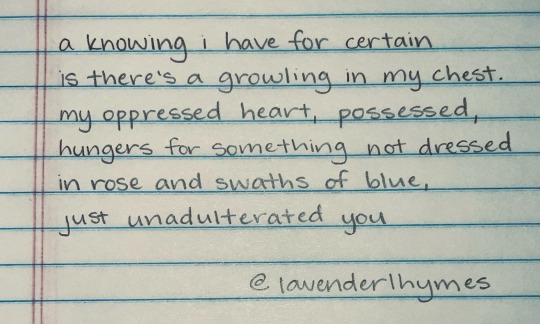 a knowing i have for certain
is there's a growling in my chest.
my oppressed heart, possessed,
hungers for something not dressed
in rose and swaths of blue,
just unadulterated you
@lavenderlhymes